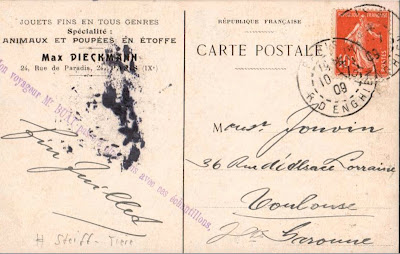 JOUETS FINS EN TOUS GENRES
Spécialité :
ANIMAUX ET POUPÉES EN ÉTOFFE
Max DIECKMANN
24, Rue de Paradis, PARIS (Xe)
Mon voyageur Mr avec ces échantillons.
Fin Juillet
# Steiff - Tiere
RÉPUBLIQUE FRANÇAISE
CARTE POSTALE
09
R. D'ENGHIEN
Monsr Jouvin
36 Rue d'Alsace Lorraine
Toulouse
Hte Garonne